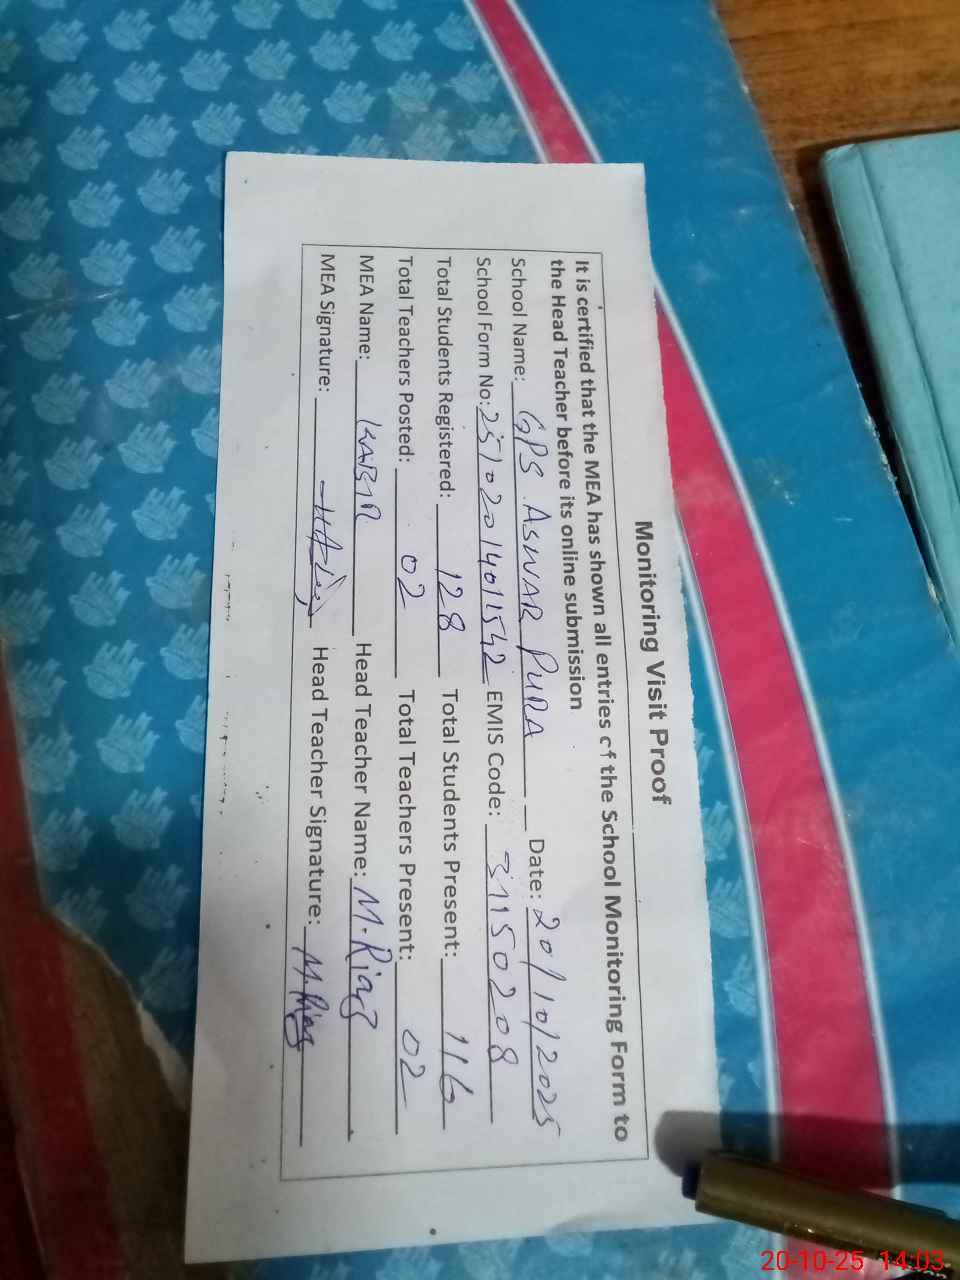 Monitoring Visit Proof
It is certified that the MEA has shown all entries of the School Monitoring Form to
the Head Teacher before its online submission
School Name: GPS ASWAR PURA Date: 20/10/2025
School Form No: 25102014011542 EMIS Code: 31150208
Total Students Registered: 128 Total Students Present: 116
Total Teachers Posted: 02 Total Teachers Present: 02
MEA Name: KABIR Head Teacher Name: M.Riaz
MEA Signature: Head Teacher Signature: M.Riaz
20-10-25 14:03